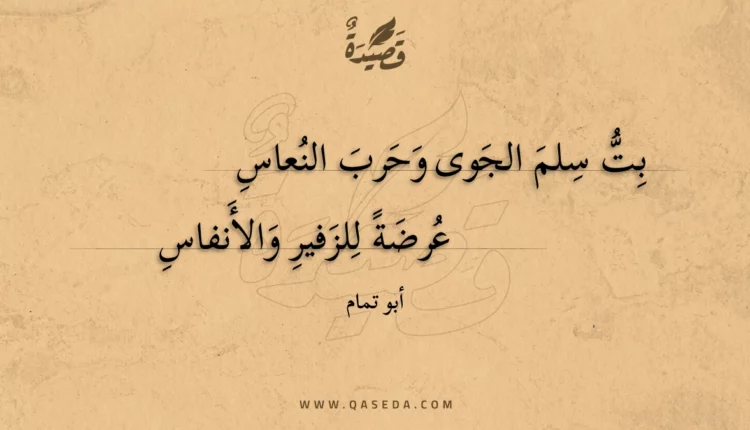 قَصِيْدَةٌ
بِتُّ سِلمَ الجَوى وَحَربَ النُعاسِ
عُرضَةً لِلزَفيرِ وَالأَنفاسِ
أبو تمام
WWW.QASEDA.COM